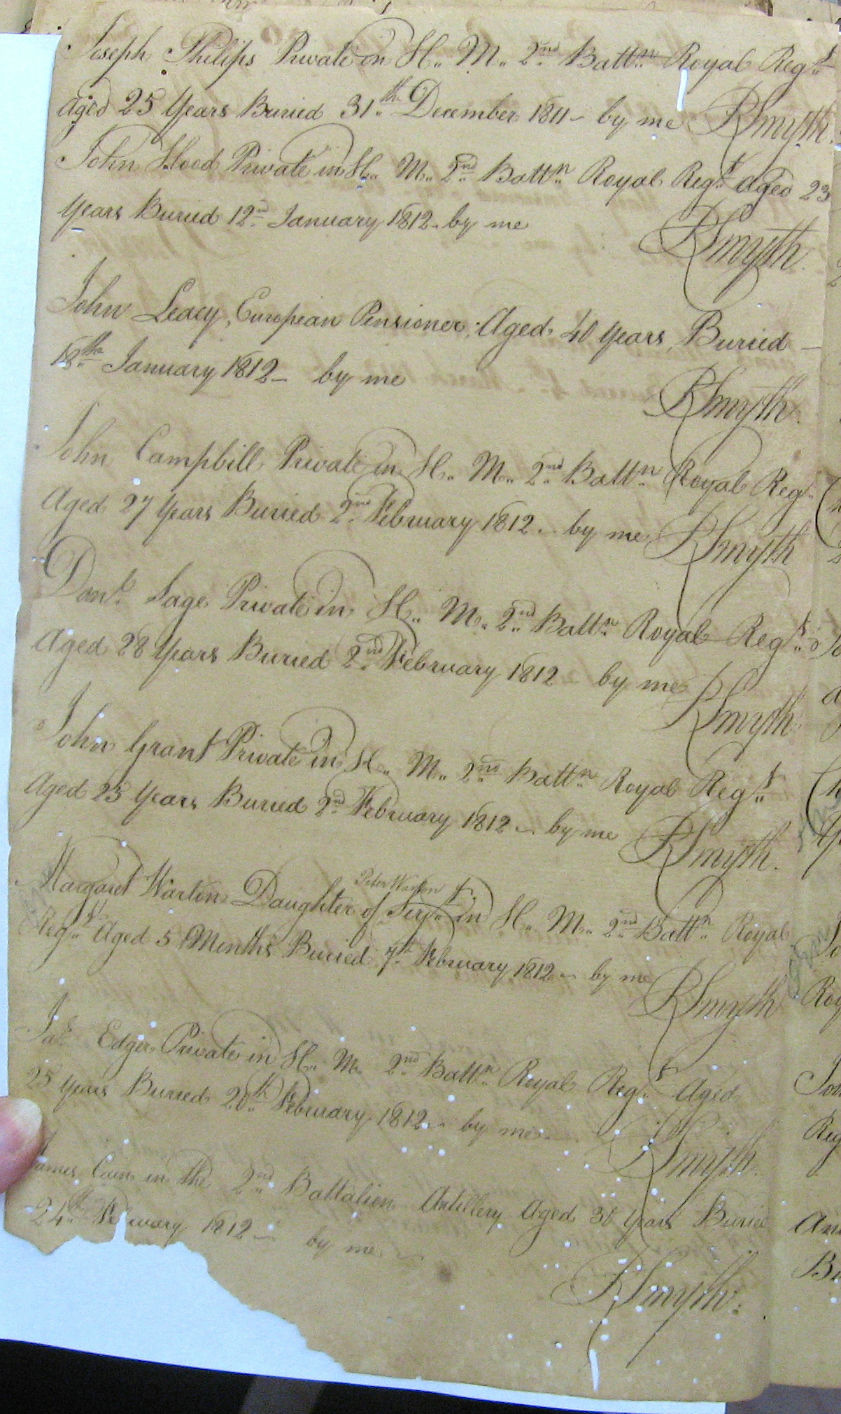 Joseph Philips Private in H.. M.. 2nd Battn Royal Regt
aged 25 Years Buried 31th December 1811 – by me RSmyth.
John Hood Private in H.. M.. 2nd Battn Royal Regt aged 23
Years Buried 12th January 1812 – by me
RSmyth.
John Leacy, European Pensioner, Aged 40 Years, Buried –
18th January 1812 – by me
RSmyth.
John Campbill Private in H.. M.. 2nd Battn Royal Regt
Aged 27 Years Buried 2nd February 1812 .. by me RSmyth
Danl Sage Private in H.. M.. 2nd Battn Royal Regt
Aged 28 Years Buried 2nd February 1812 by me
RSmyth.
John Grant Private in H.. M.. 2nd Battn Royal Regt
Aged 25 Years Buried 2nd February 1812 – by me
RSmyth.
Peter Warlin
Margaret Warlin Daughter of Serjt in H.. M.. 2nd Battn Royal
Regt Aged 5 Months Buried 7th February 1812 – by me
RSmyth
Jas Edger Private in H.. M.. 2nd Battn Royal Regt Aged
25 Years Buried 20th February 1812 .. by me
RSmyth.
James in the 2nd Battalion Artillery Aged Years Buried
24th February 1812 – by me –
RSmyth.